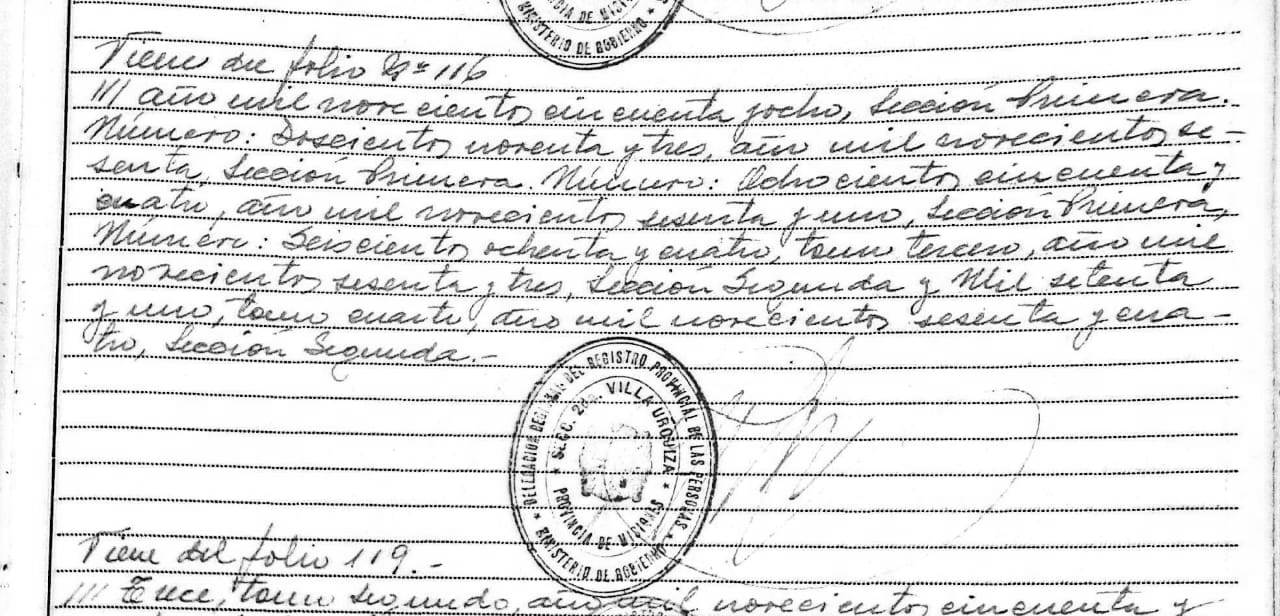 PROVINCIA DE MISIONES
MINISTERIO DE GOBIERNO
Viene del folio Nº 116
/// año mil novecientos cincuenta y ocho, Sección Primera.
Número: Doscientos noventa y tres, año mil novecientos se-
senta, Sección Primera. Número: Ochocientos cincuenta y
cuatro, año mil novecientos sesenta y uno, Sección Primera,
Número: Seiscientos ochenta y cuatro, tomo tercero, año mil
novecientos sesenta y tres, Sección Segunda y Mil setenta
y uno, tomo cuarto, año mil novecientos sesenta y cua-
tro, Sección Segunda.-
DELEGACION DEL REGISTRO PROVINCIAL DE LAS PERSONAS
SECC. 2da. VILLA URQUIZA
PROVINCIA DE MISIONES
MINISTERIO DE GOBIERNO
Viene del folio 119.-
/// Trece, tomo segundo, año mil novecientos cincuenta y